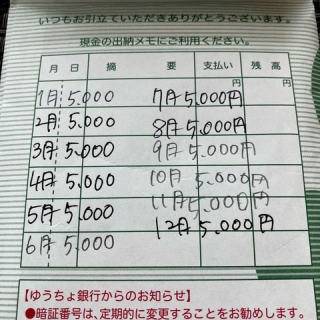 いつもお引立ていただきありがとうございます。
現金の出納メモにご利用ください。
月 日 摘 要 支払い 残高
円 円
1月 5.000 7月 5.000円
2月 5.000 8月 5.000円
3月 5.000 9月 5.000円
4月 5.000 10月 5.000円
5月 5.000 11月 5.000円
6月 5.000 12月 5.000円
【ゆうちょ銀行からのお知らせ】
●暗証番号は、定期的に変更することをお勧めします。